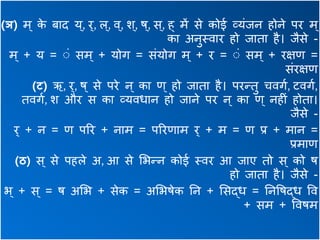 (ञ) म् के बाद य्, र्, ल्, व्, श्, ष्, स्, ह् में से कोई व्यंजन होने पर म्
का अनुस्वार हो जाता है। जैसे -
म् + य = ं सम् + योग = संयोग म् + र = ं सम् + रक्षण =
संरक्षण
(ट) ऋ, र्, ष् से परे न् का ण् हो जाता है। परन्तु चवर्ग, टवर्ग,
तवर्ग, श और स का व्यवधान हो जाने पर न् का ण् नहीं होता।
जैसे -
र् + न = ण परि + नाम = परिणाम र् + म = ण प्र + मान =
प्रमाण
(ठ) स् से पहले अ, आ से भिन्न कोई स्वर आ जाए तो स् को ष
हो जाता है। जैसे -
भ् + स् = ष अभि + सेक = अभिषेक नि + सिद्ध = निषिद्ध वि
+ सम + विषम